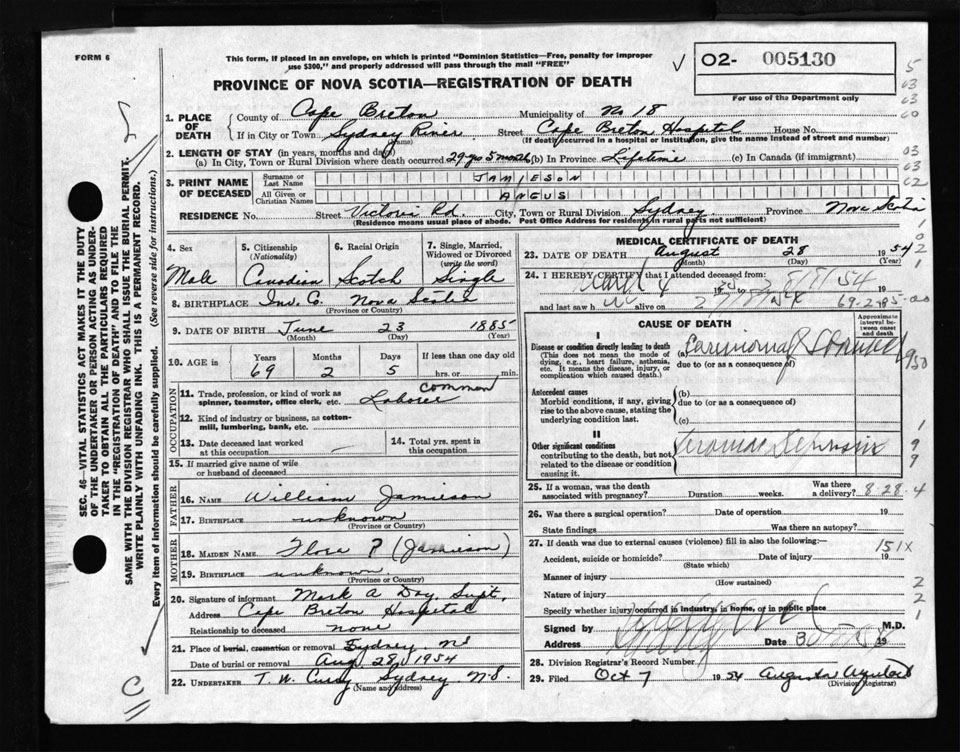 FORM 6
This form, if placed in an envelope, on which is printed "Dominion Statistics—Free, penalty for improper
use $300," and properly addressed will pass through the mail "FREE"
PROVINCE OF NOVA SCOTIA—REGISTRATION OF DEATH
O2- 005130
For use of the Department only
1. PLACE OF DEATH
County of Cape Breton Municipality of No 18
If in City or Town Sydney River Street Cape Breton Hospital House No.
(Name) (If death occurred in a hospital or institution, give the name instead of street and number)
2. LENGTH OF STAY (in years, months and days)
(a) In City, Town or Rural Division where death occurred 29 yrs 5 months (b) In Province Lifetime (c) In Canada (if immigrant)
3. PRINT NAME OF DECEASED
Surname or Last Name JAMIESON
All Given or Christian Names ANGUS
RESIDENCE No. Street Victoria Rd. City, Town or Rural Division Sydney Province Nova Scotia
(Residence means usual place of abode. Post Office Address for residents in rural parts not sufficient)
4. Sex 5. Citizenship (Nationality) 6. Racial Origin 7. Single, Married, Widowed or Divorced (write the word)
Male Canadian Scotch Single
8. BIRTHPLACE Inv. C. Nova Scotia
(Province or Country)
9. DATE OF BIRTH June 23 1885
(Month) (Day) (Year)
10. AGE is Years Months Days If less than one day old
69 2 5 hrs. or min.
OCCUPATION
11. Trade, profession, or kind of work as spinner, teamster, office clerk, etc. common Laborer
12. Kind of industry or business, as cotton-mill, lumbering, bank, etc.
13. Date deceased last worked at this occupation
14. Total yrs. spent in this occupation
15. If married give name of wife or husband of deceased
FATHER
16. NAME William Jamieson
17. BIRTHPLACE unknown
(Province or Country)
MOTHER
18. MAIDEN NAME Flora P (Jamieson)
19. BIRTHPLACE unknown.
(Province or Country)
20. Signature of informant Mark A Day, Supt.
Address Cape Breton Hospital
Relationship to deceased none
21. Place of burial, cremation or removal Sydney NS
Date of burial or removal Aug 28, 1954
22. UNDERTAKER T. W. Curry Sydney N.S.
(Name and address)
MEDICAL CERTIFICATE OF DEATH
23. DATE OF DEATH August 28 1954
(Month) (Day) (Year)
24. I HEREBY CERTIFY that I attended deceased from:
and last saw h alive on
69-2-85-00
CAUSE OF DEATH
Approximate interval between onset and death
I
Disease or condition directly leading to death
(This does not mean the mode of dying, e.g., heart failure, asthenia, etc. It means the disease, injury, or complication which caused death.)
(a) Carcinoma of Stomach 1950
due to (or as a consequence of)
Antecedent causes
Morbid conditions, if any, giving rise to the above cause, stating the underlying condition last.
(b)
due to (or as a consequence of)
(c)
II
Other significant conditions
contributing to the death, but not related to the disease or condition causing it.
25. If a woman, was the death associated with pregnancy? Duration weeks. Was there a delivery? 8-28-4
26. Was there a surgical operation? Date of operation 19
State findings Was there an autopsy?
27. If death was due to external causes (violence) fill in also the following:—
Accident, suicide or homicide? Date of injury 19
(State which)
151X
Manner of injury
(How sustained)
Nature of injury
Specify whether injury occurred in industry, in home, or in public place
Signed by M.D.
Address Date 19
28. Division Registrar's Record Number
29. Filed Oct 7 1954
(Division Registrar)
SEC. 46—VITAL STATISTICS ACT MAKES IT THE DUTY
OF THE UNDERTAKER OR PERSON ACTING AS UNDER-
TAKER TO OBTAIN ALL THE PARTICULARS REQUIRED
IN THE "REGISTRATION OF DEATH" AND TO FILE THE
SAME WITH THE DIVISION REGISTRAR WHO SHALL ISSUE THE BURIAL PERMIT.
WRITE PLAINLY WITH UNFADING INK. THIS IS A PERMANENT RECORD.
Every item of information should be carefully supplied. (See reverse side for instructions.)